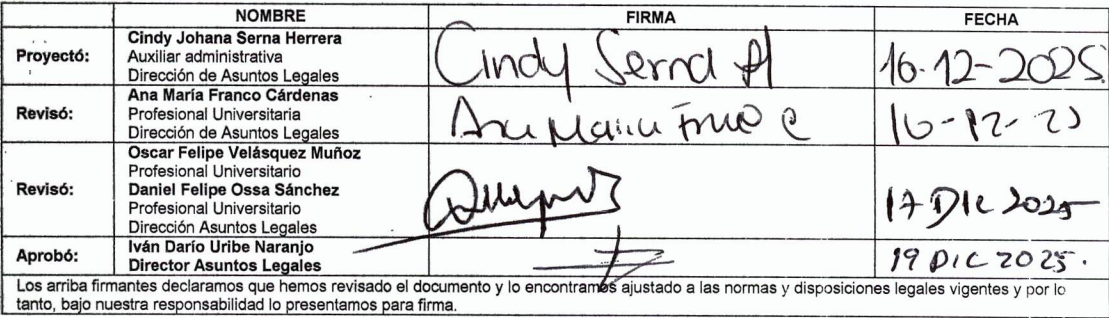 NOMBRE FIRMA FECHA
Proyectó: Cindy Johana Serna Herrera
Auxiliar administrativa
Dirección de Asuntos Legales
Cindy Serna H 16-12-2025
Revisó: Ana María Franco Cárdenas
Profesional Universitaria
Dirección de Asuntos Legales
Ana Maria Franco C 16-12-25
Revisó: Oscar Felipe Velásquez Muñoz
Profesional Universitario
Daniel Felipe Ossa Sánchez
Profesional Universitario
Dirección Asuntos Legales
17 DIC 2025
Aprobó: Iván Darío Uribe Naranjo
Director Asuntos Legales
19 DIC 2025.
Los arriba firmantes declaramos que hemos revisado el documento y lo encontramos ajustado a las normas y disposiciones legales vigentes y por lo
tanto, bajo nuestra responsabilidad lo presentamos para firma.